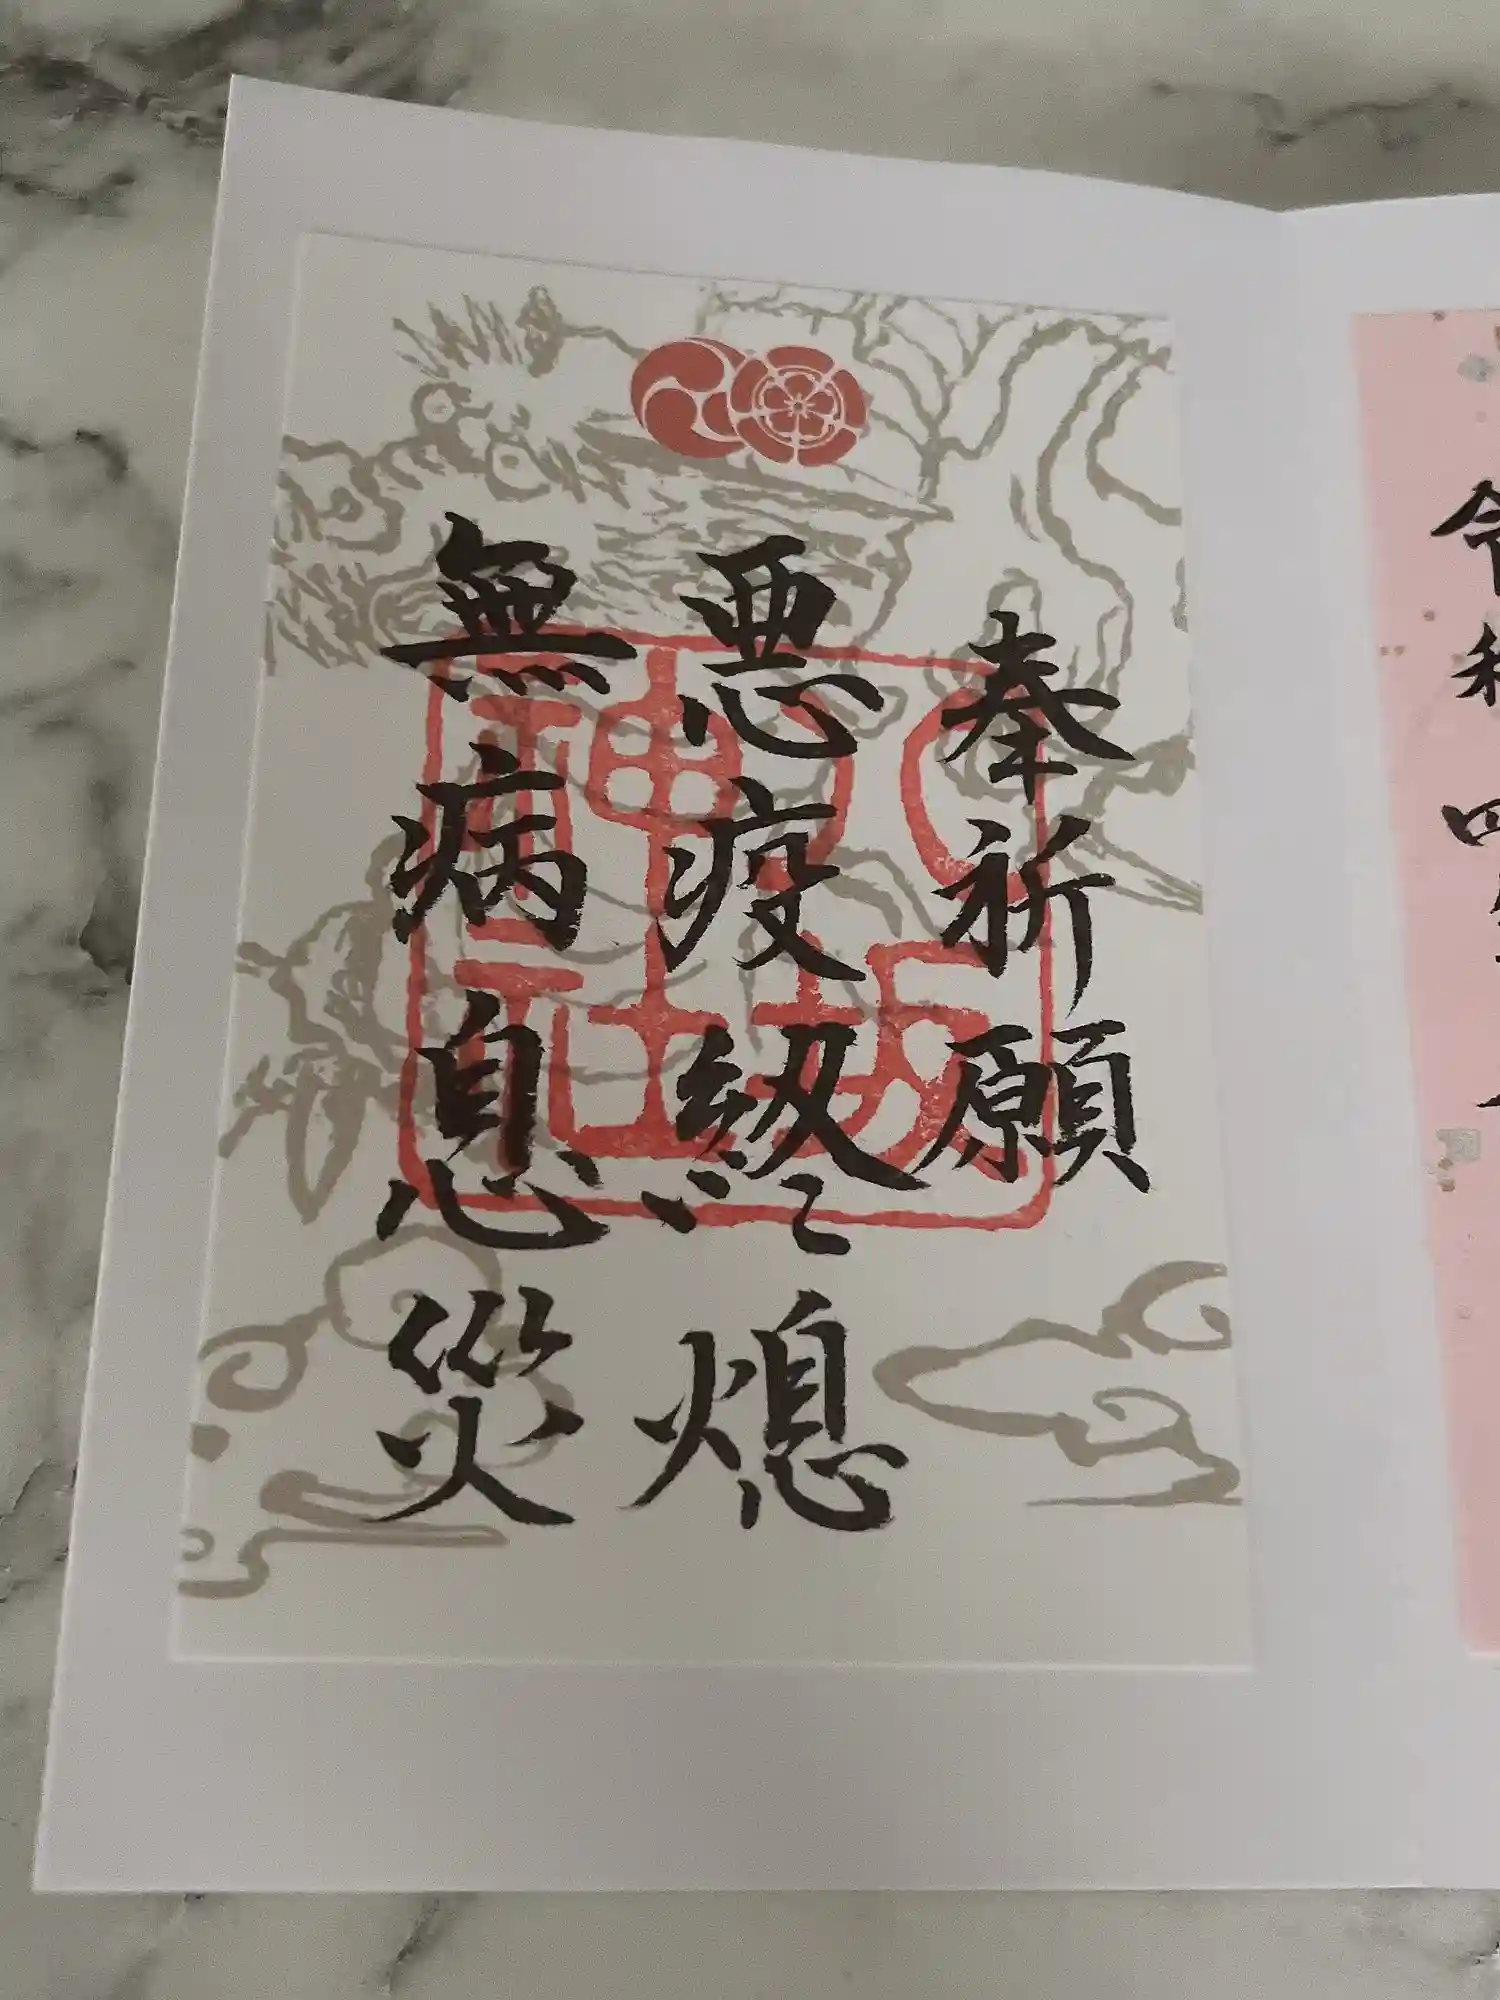 奉祈願
悪疫終熄
無病息災
八坂神社
令和四年